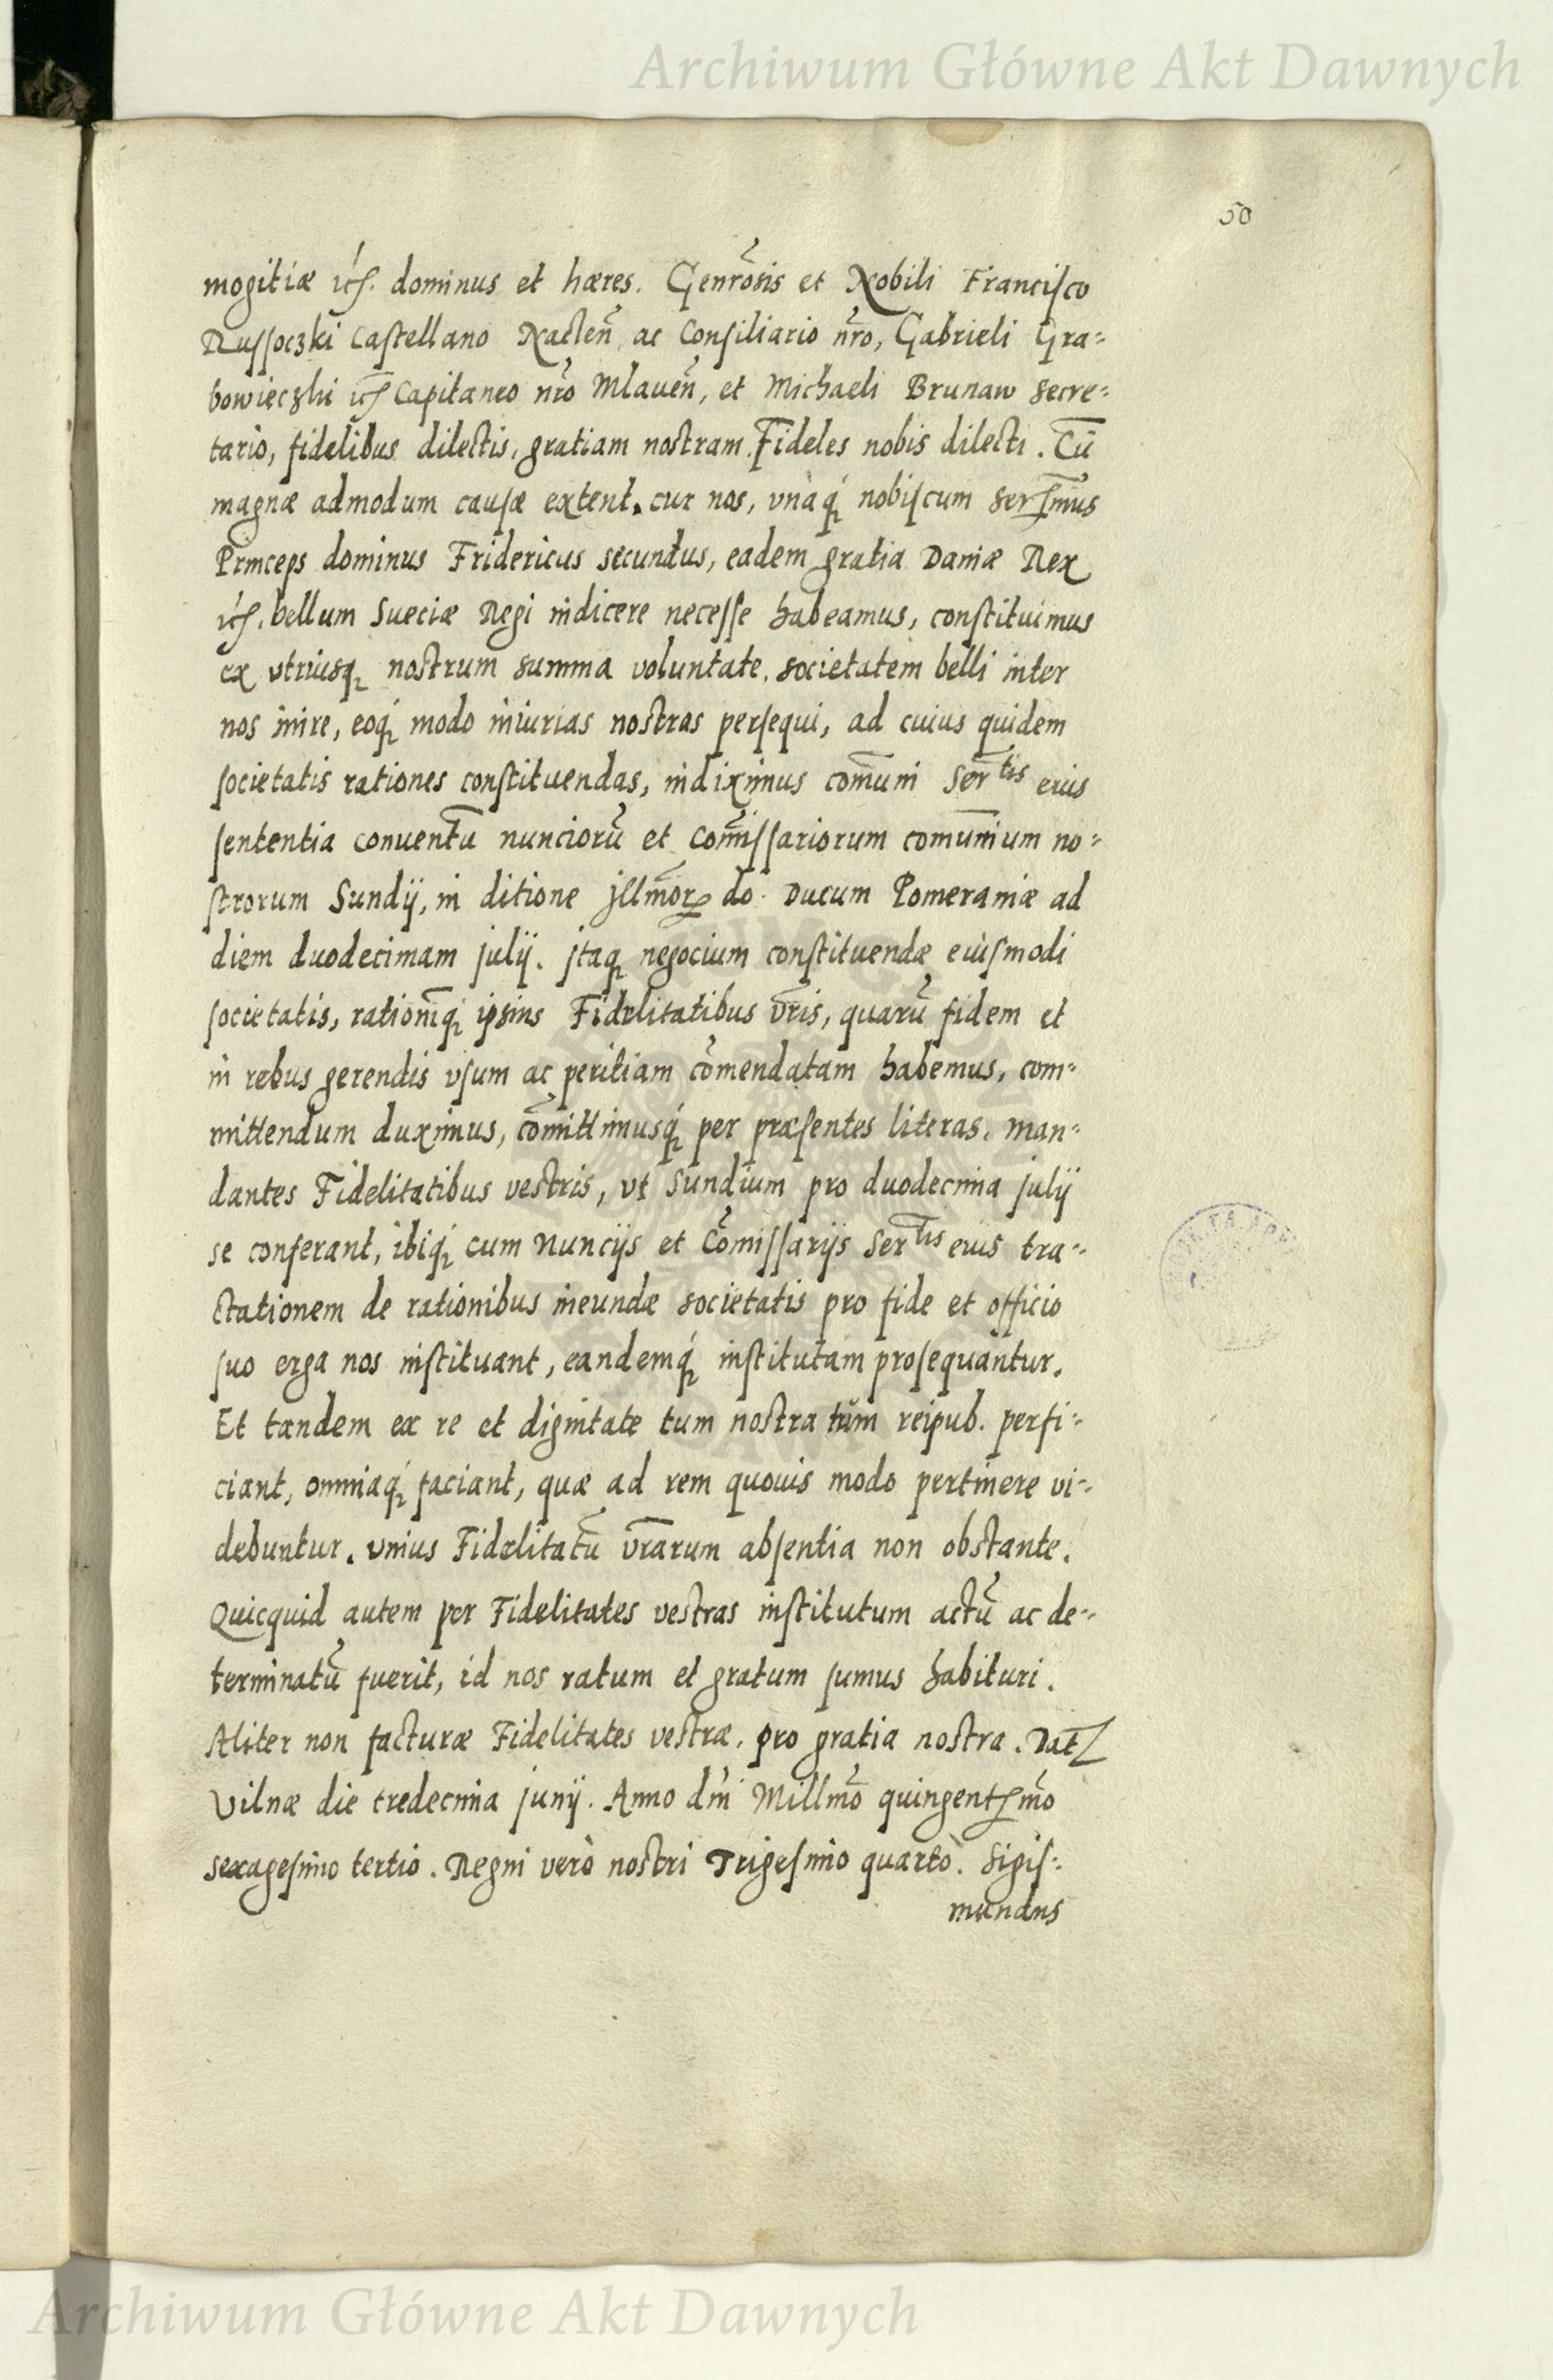 Archiwum Główne Akt Dawnych
50
mogitiæ etc. dominus et hæres. Genrosis et Nobili Francisco
Russoczki Castellano Naclen̄ ac Consiliario nr̄o, Gabrieli Gra=
bowieczki etc Capitaneo nr̄o Mlauen̄, et Michaeli Brunaw Secre=
tario, fidelibus dilectis, gratiam nostram. Fideles nobis dilecti. Cū
magnæ admodum causæ extent, cur nos, vnàq́ꝫ nobiscum Sermus
Princeps dominus Fridericus secundus, eadem gratia Daniæ Rex
etc. bellum Sueciæ Regi indicere necesse habeamus, constituimus
ex vtriusqꝫ nostrum summa voluntate, societatem belli inter
nos inire, eoq́ꝫ modo iniurias nostras persequi, ad cuius quidem
societatis rationes constituendas, indiximus com̄uni Sertis eius
sententia conuentū nunciorū et Com̄issariorum com̄unium no=
strorum Sundij, in ditione Jllmorꝝ do. Ducum Pomeraniæ ad
diem duodecimam julij. jtaqꝫ negocium constituendæ eiusmodi
societatis, rationūq́ꝫ ipsius Fidelitatibus vr̄is, quarū fidem et
in rebus gerendis vsum ac peritiam com̄endatam habemus, com=
mittendum duximus, com̄ittimusq́ꝫ per præsentes literas. Man=
dantes Fidelitatibus vestris, vt Sundium pro duodecima julij
se conferant, ibiq́ꝫ cum Nuncijs et Com̄issarijs Sertis eius tra=
ctationem de rationibus ineundæ societatis pro fide et officio
suo erga nos instituant, eandemq́ꝫ institutam prosequantur.
Et tandem ex re et dignitate tum nostra tum reipub. perfi=
ciant, omniaq́ꝫ faciant, quæ ad rem quouis modo pertinere vi=
debuntur. vnius Fidelitatū vr̄arum absentia non obstante.
Quicquid autem per Fidelitates vestras institutum actū ac de=
terminatū fuerit, id nos ratum et gratum sumus habituri.
Aliter non facturæ Fidelitates vestræ, pro gratia nostra. Dat
Vilnæ die tredecima junij. Anno dni Millmo quingentsmo
sexagesimo tertio. Regni verò nostri Trigesimo quarto. Sigis=
mundus
Archiwum Główne Akt Dawnych